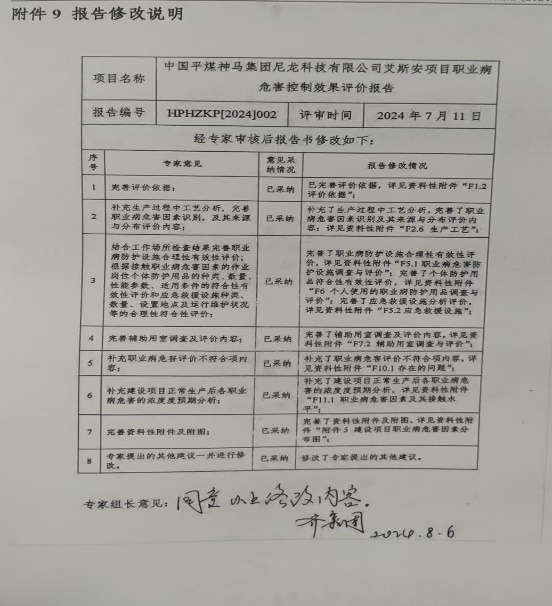 附件 9 报告修改说明
项目名称
中国平煤神马集团尼龙科技有限公司艾斯安项目职业病
危害控制效果评价报告
报告编号 HPHZKP[2024]002 评审时间 2024 年 7 月 11 日
经专家审核后报告书修改如下：
序号 专家意见 意见采纳情况 报告修改情况
1 完善评价依据； 已采纳 已完善评价依据，详见资料性附件“F1.2
评价依据”；
2 补充生产过程中工艺分析，完善
职业病危害因素识别，及其来源
与分布评价内容； 已采纳 补充了生产过程中工艺分析，完善了职业
病危害因素识别及其来源与分布评价内
容；详见资料性附件“F2.6 生产工艺”；
3 结合工作场所检查结果完善职业
病防护设施合理性有效性评价；
根据接触职业病危害因素的作业
岗位个体防护用品的种类、数量、
性能参数、适用条件的符合性有
效性评价和应急救援设施种类、
数量、设置地点及运行维护状况
等的合理性符合性评价； 已采纳 完善了职业病防护设施合理性有效性评
价，详见资料性附件“F5.1 职业病危害防
护设施调查与评价”；完善了个体防护用
品符合性有效性评价，详见资料性附件
“F6 个人使用的职业病防护用品调查与评
价”；完善了应急救援设施分析评价，
详见资料性附件“F5.2 应急救援设施”；
4 完善辅助用室调查及评价内容； 已采纳 完善了辅助用室调查及评价内容，详见资
料性附件“F7.2 辅助用室调查与评价”；
5 补充职业病危害评价不符合项内
容； 已采纳 补充了职业病危害评价不符合项内容，详
见资料性附件“F10.1 存在的问题”；
6 补充建设项目正常生产后各职业
病危害的浓度度预期分析； 已采纳 补充了建设项目正常生产后各职业病危
害的浓度度预期分析，详见资料性附件
“F11.1 职业病危害因素及其接触水
平”；
7 完善资料性附件及附图； 已采纳 完善了资料性附件及附图，详见资料性附
件“附件 5 建设项目职业病危害因素分
布图”；
8 专家提出的其他建议一并进行修
改。 已采纳 修改了专家提出的其他建议。
专家组长意见：同意以上修改内容。
2024.8.6